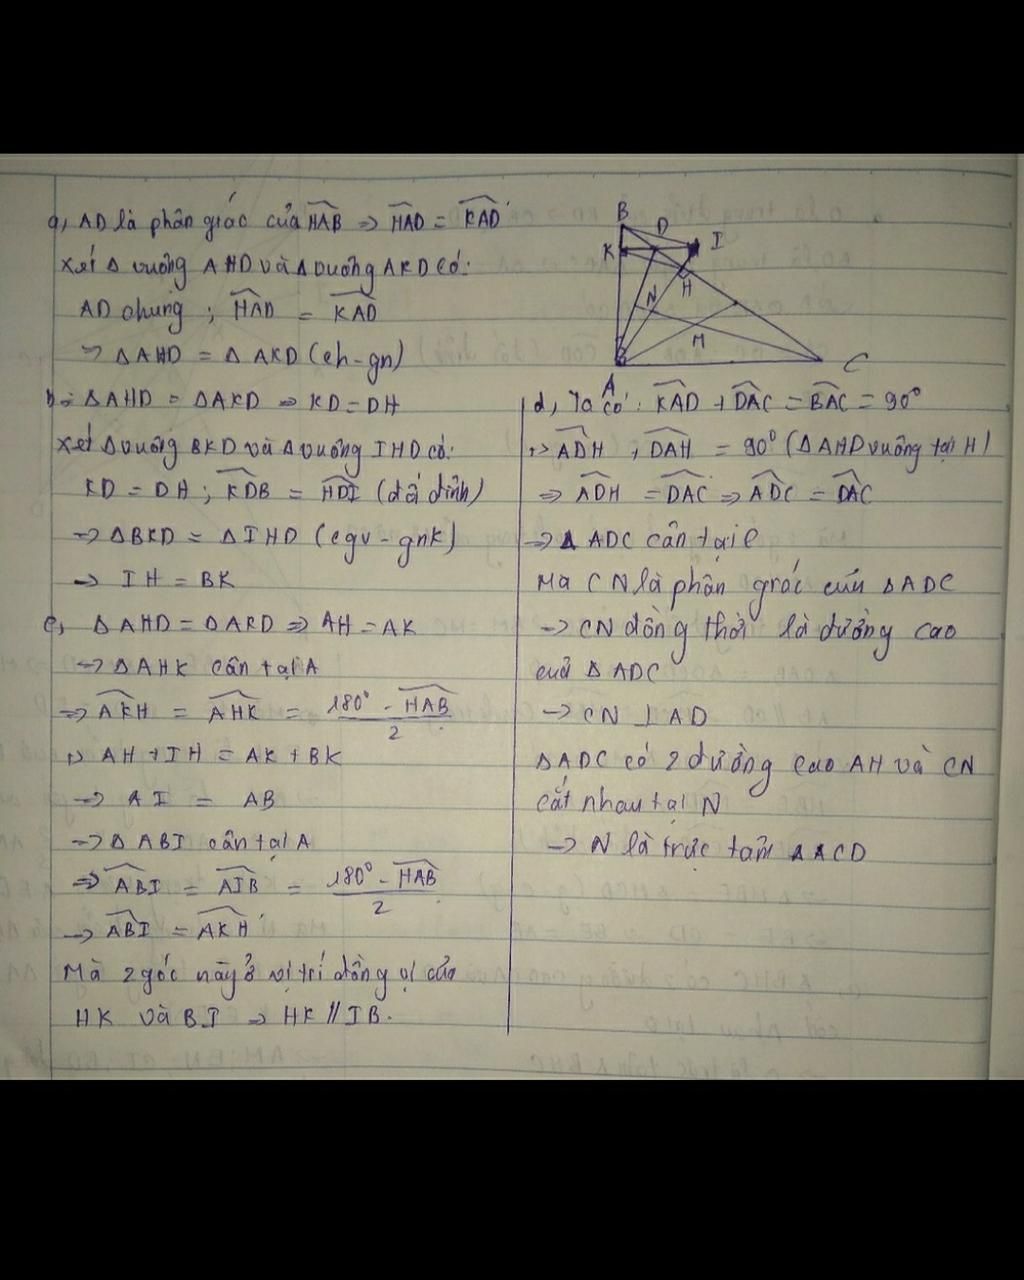 a, AD là phân giác của HAB => HAD = KAD
Xét Δ vuông AHD và Δ vuông AKD có:
AD chung ; HAD = KAD
=> Δ AHD = Δ AKD (ch-gn)
b, Δ AHD = Δ AKD => KD = DH
Xét Δ vuông BKD và Δ vuông IHD có:
KD = DH ; KDB = HDI (đối đỉnh)
=> Δ BKD = Δ IHD (cgv - gnk)
-> IH = BK
c, Δ AHD = Δ AKD => AH = AK
-> Δ AHK cân tại A
=> AKH = AHK = 180° - HAB
2
AH + IH = AK + BK
-> AI = AB
-> Δ ABI cân tại A
=> ABI = AIB = 180° - HAB
2
-> ABI = AKH
Mà 2 góc này ở vị trí đồng vị của
HK và BI => HK // IB.
B
D
I
K
H
N
M
A
C
d, Ta có: KAD + DAC = BAC = 90°
ADH + DAH = 90° (Δ AHD vuông tại H)
=> ADH = DAC => ADC = DAC
-> Δ ADC cân tại C
Mà CN là phân giác của Δ ADC
-> CN đồng thời là đường cao
của Δ ADC
-> CN ⊥ AD
Δ ADC có 2 đường cao AH và CN
cắt nhau tại N
-> N là trực tâm Δ ACD